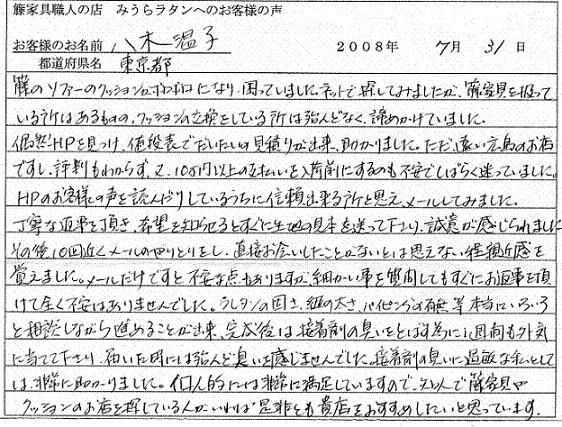 籐家具職人の店 みうらラタンへのお客様の声
お客様のお名前 八木温子 2008年 7月 31日
都道府県名 東京都
籐のソファーのクッションがボロボロになり困っていました。ネットで探してみましたが、籐家具を扱って
いる所はあるものの、クッションの交換をしている所は殆んどなく、諦めかけていました。
偶然HPを見つけ、値段表でだいたいの見積りが出来、助かりました。ただ遠い広島のお店
ですし、評判もわからず、又、10万円以上の支払いを入荷前にするのも不安でしばらく迷っていました。
HPのお客様の声を読んだりしているうちに信頼出来る所と思え、メールしてみました。
丁寧な返事を頂き、希望を知らせるとすぐに生地の見本を送って下さり、誠意が感じられました
その後10回近くメールのやりとりをし、直接お会いしたことがないとは思えない程親近感を
覚えました。メールだけですと不安な点もありますが、細かい事を質問してもすぐにお返事を頂
けて全く不安はありませんでした。ウレタンの固さ、紐の太さ、パイピングの有無、等本当にいろいろ
と相談しながら進めることが出来、完成後は接着剤の臭いをとばす為に1週間も外気
に当てて下さり、届いた時には殆んど臭いを感じませんでした。接着剤の臭いに過敏な私としては
は非常に助かりました。個人的には非常に満足していますので、知人で籐家具や
クッションのお店を探している人がいれば是非とも貴店をおすすめしたいと思っています。